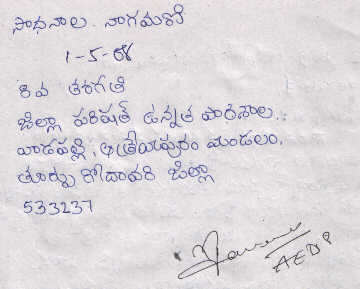 సాధనాల నాగమణి
1-5-08
8వ తరగతి
జిల్లా పరిషత్ ఉన్నత పాఠశాల.,
వాడపల్లి, ఆత్రేయపురం మండలం,
తూర్పు గోదావరి జిల్లా
533237
AEDP